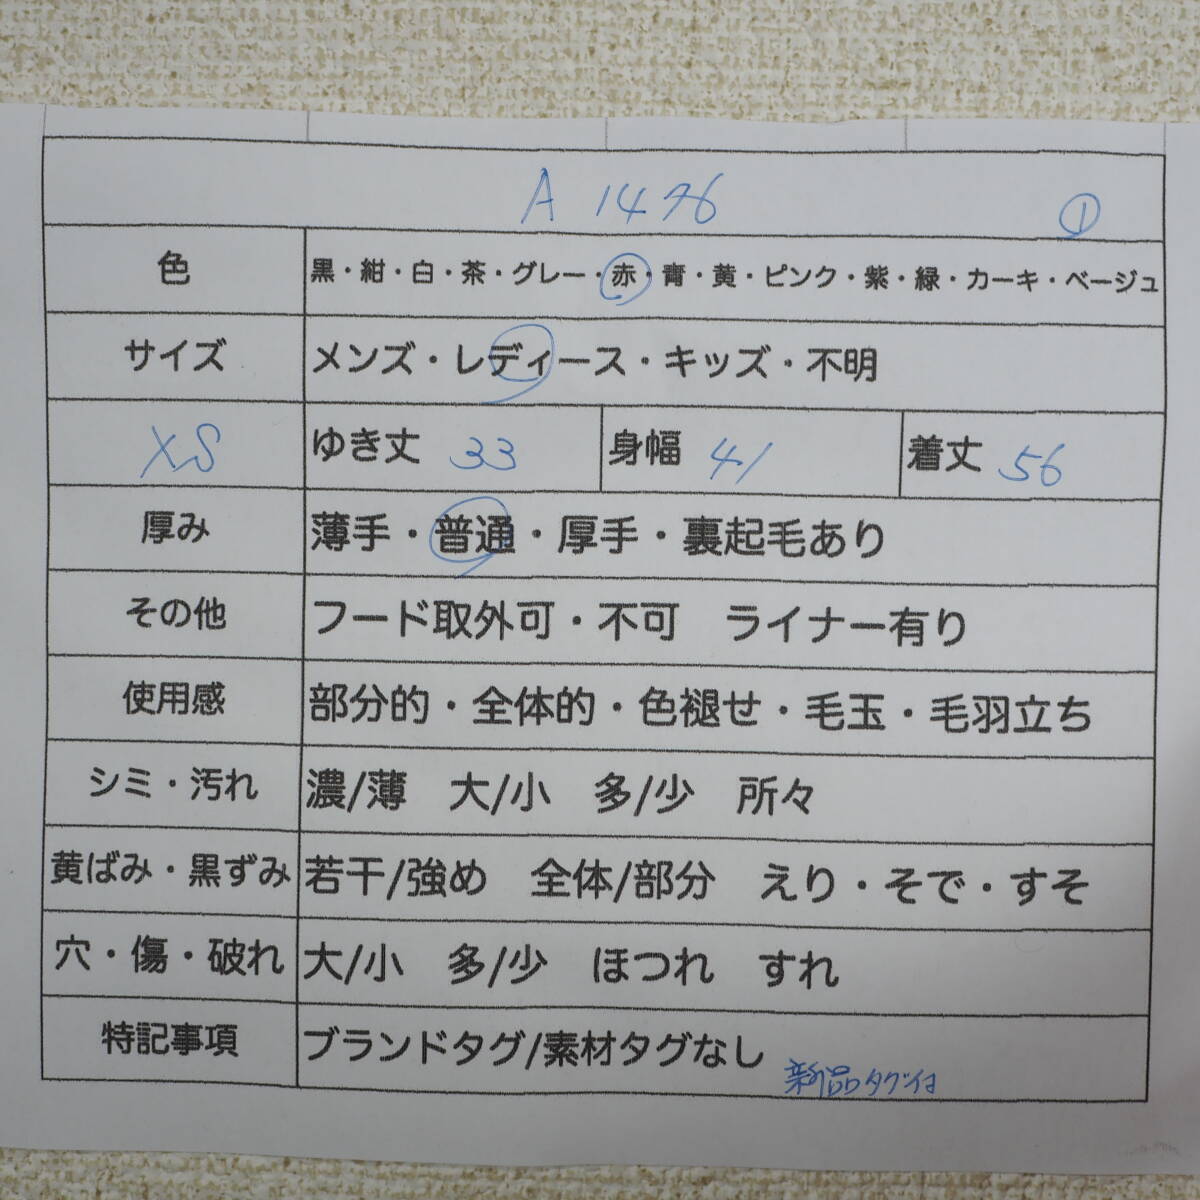 A 1476 ①
色 黒・紺・白・茶・グレー・赤・青・黄・ピンク・紫・緑・カーキ・ベージュ
サイズ メンズ・レディース・キッズ・不明
XS ゆき丈 33 身幅 41 着丈 56
厚み 薄手・普通・厚手・裏起毛あり
その他 フード取外可・不可 ライナー有り
使用感 部分的・全体的・色褪せ・毛玉・毛羽立ち
シミ・汚れ 濃/薄 大/小 多/少 所々
黄ばみ・黒ずみ 若干/強め 全体/部分 えり・そで・すそ
穴・傷・破れ 大/小 多/少 ほつれ すれ
特記事項 ブランドタグ/素材タグなし
新品タグ付